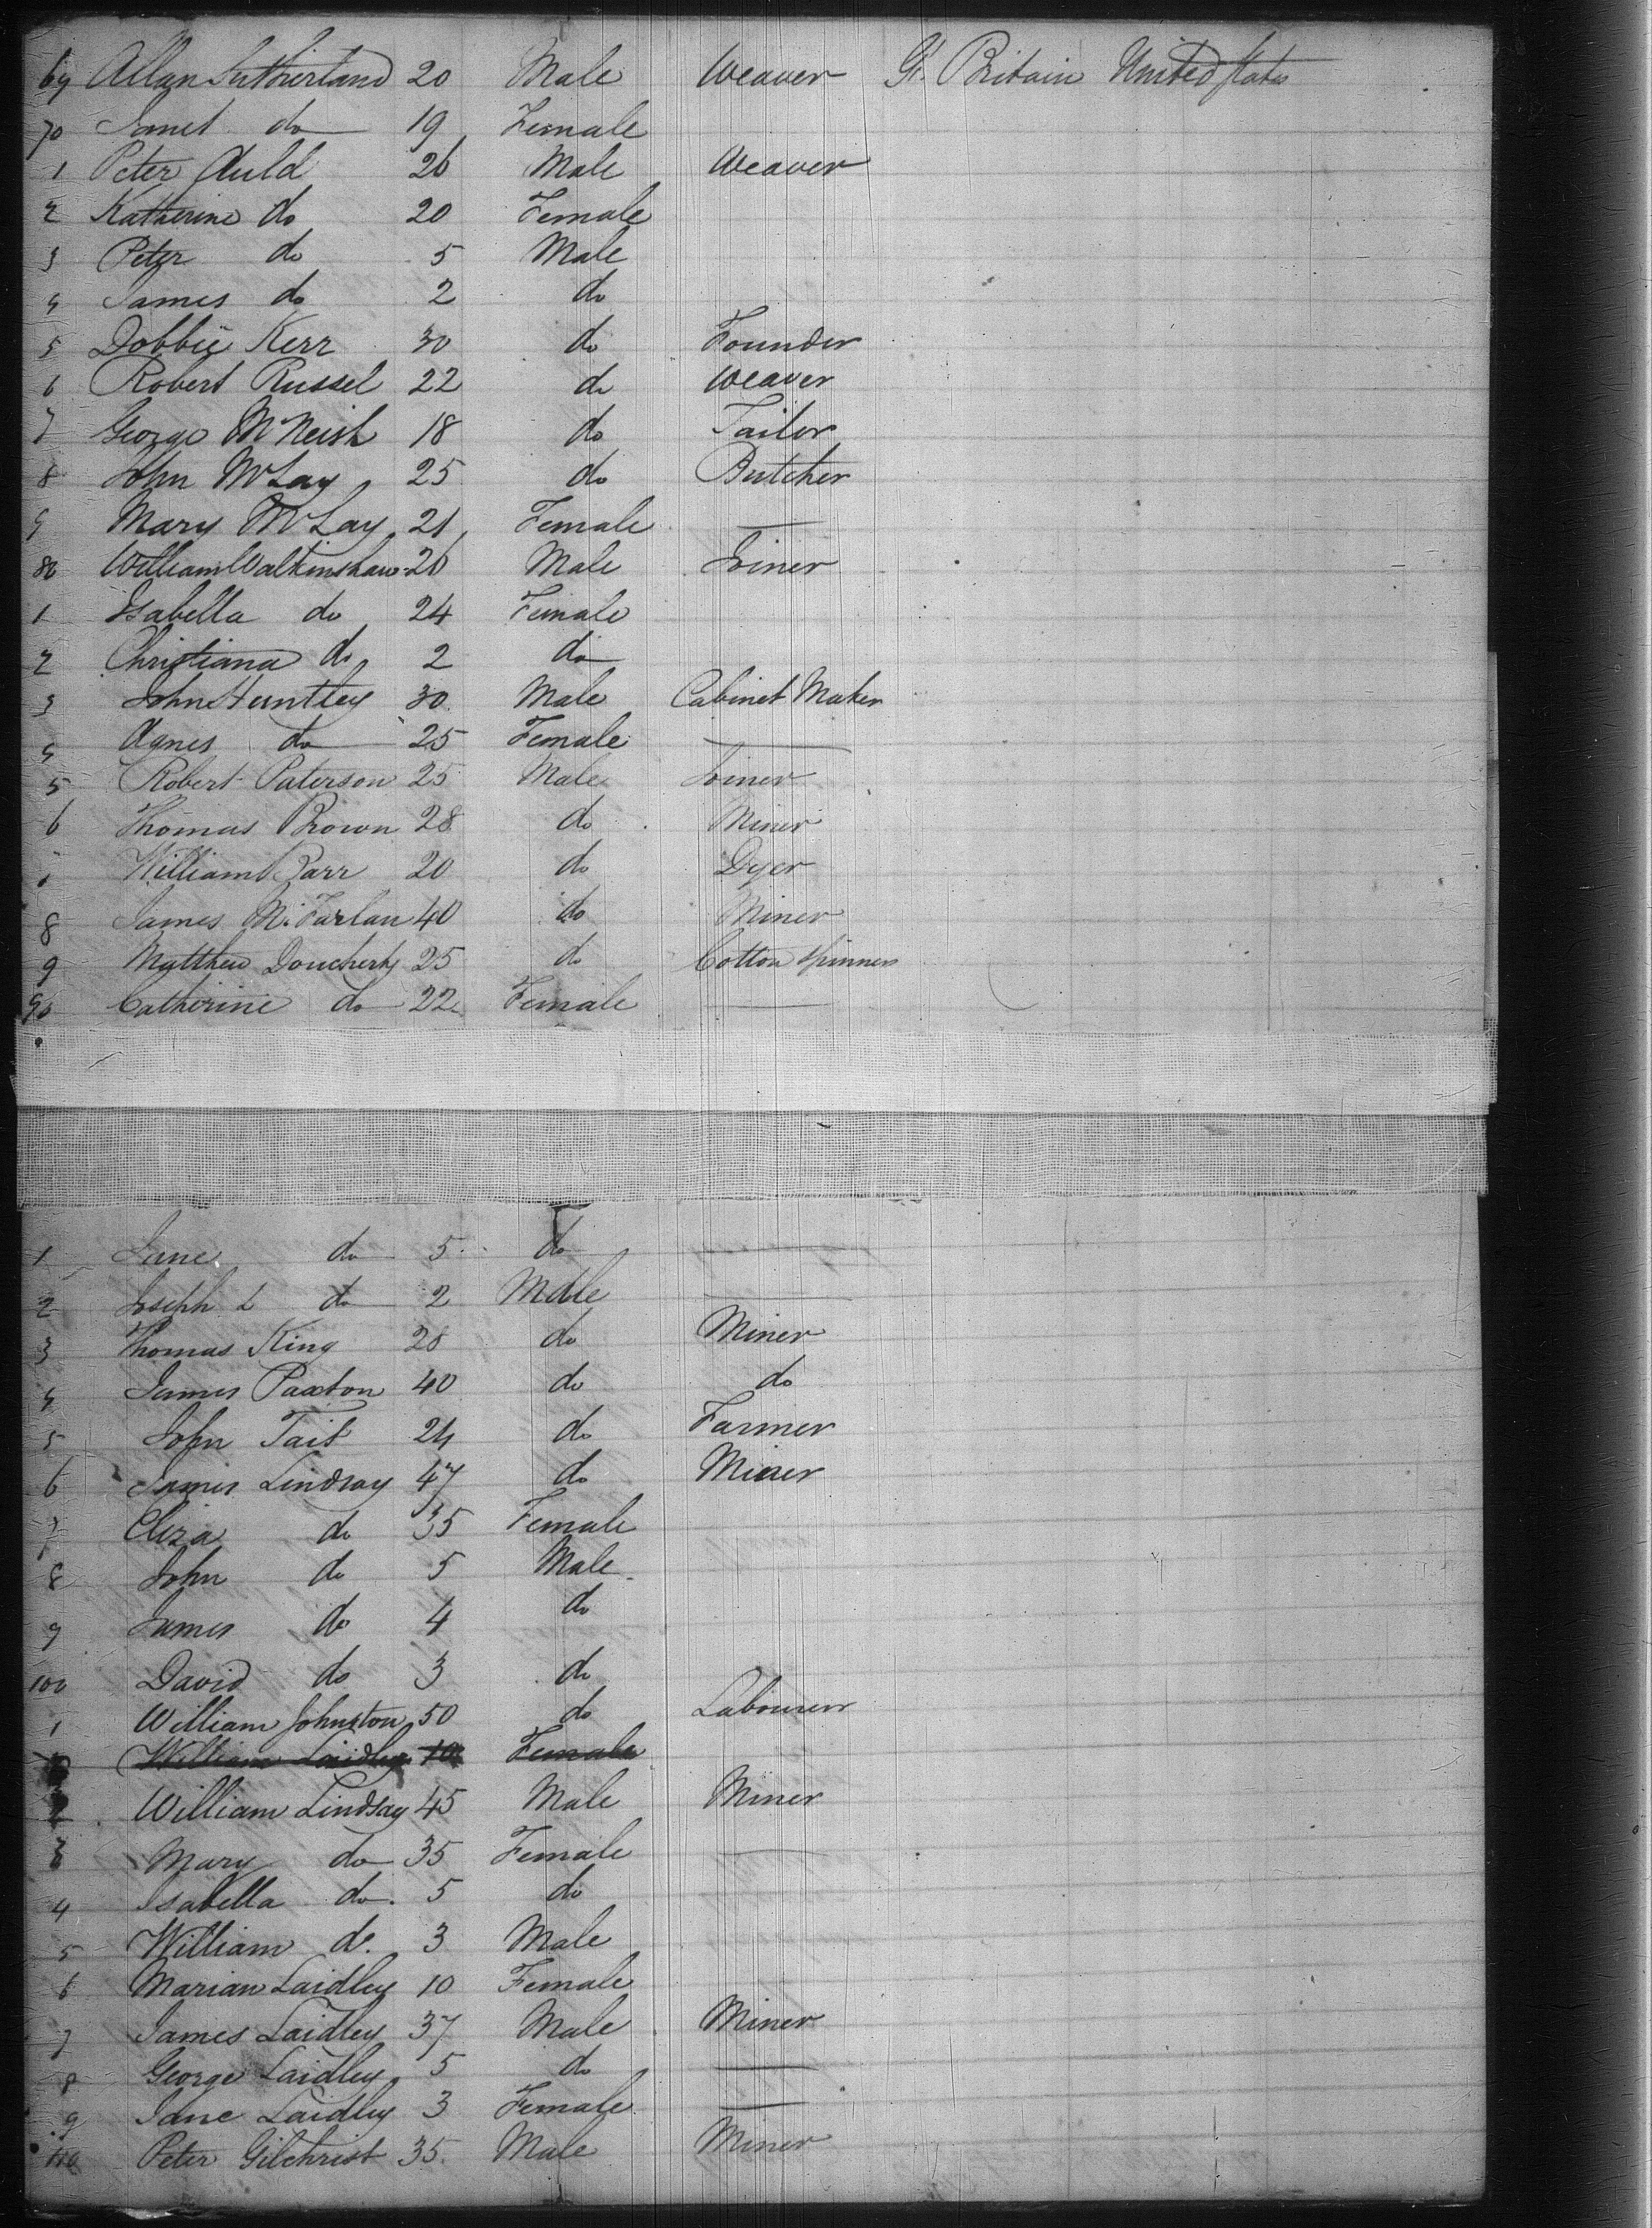 69 Allan Sutherland 20 Male Weaver Gt. Britain United States
70 Janet do 19 Female
1 Peter Auld 26 Male Weaver
2 Katherine do 20 Female
3 Peter do 5 Male
4 James do 2 do
5 Dobbie Kerr 30 do Founder
6 Robert Russel 22 do Weaver
7 George McNeish 18 do Tailor
8 John McLay 25 do Butcher
9 Mary McLay 21 Female
80 William Walkinshaw 26 Male Joiner
1 Isabella do 24 Female
2 Christiana do 2 do
3 John Huntley 30 Male Cabinet Maker
4 Agnes do 25 Female
5 Robert Paterson 25 Male Joiner
6 Thomas Brown 28 do Miner
William Barr 20 do Dyer
8 James McFarlan 40 do Miner
9 Matthew Doucherty 25 do Cotton Spinner
90 Catherine do 22 Female
1 Jane do 5 do
2 Joseph L do 2 Male
3 Thomas King 28 do Miner
4 James Paxton 40 do do
5 John Tait 24 do Farmer
6 James Lindsay 47 do Miner
7 Eliza do 35 Female
8 John do 5 Male
9 James do 4 do
100 David do 3 do
1 William Johnston 50 do Labourer
William Laidley 10 Female
2 William Lindsay 45 Male Miner
3 Mary do 35 Female
4 Isabella do 5 do
5 William do. 3 Male
6 Marian Laidley 10 Female
7 James Laidley 37 Male Miner
8 George Laidley 5 do
9 Jane Laidley 3 Female
110 Peter Gilchrist 35 Male Miner